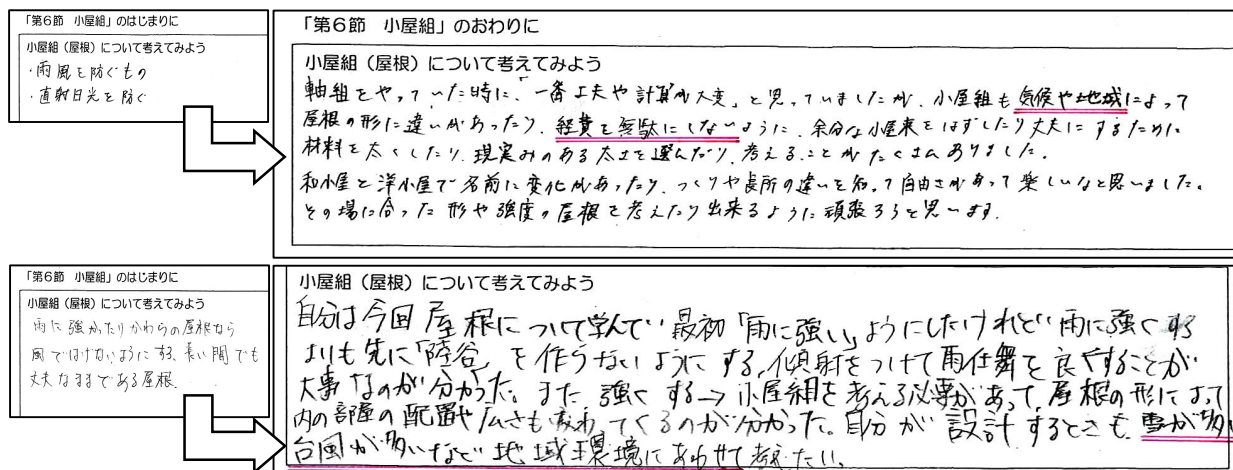 「第6節　小屋組」のはじまりに
小屋組（屋根）について考えてみよう
・雨風を防ぐもの
・直射日光を防ぐ
「第6節　小屋組」のおわりに
小屋組（屋根）について考えてみよう
軸組をやっていた時に、「一番工夫や計算が大変」と思っていましたが、小屋組も気候や地域によって
屋根の形に違いがあったり、経費を無駄にしないように、余分な小屋束をはずしたり丈夫にするために
材料を太くしたり、現実みのある太さを選んだり、考えることがたくさんありました。
和小屋と洋小屋で名前に変化があったり、つくりや長所の違いを知って自由さがあって楽しいなと思いました。
その場に合った形や強度の屋根を考えたり出来るように頑張ろうと思います。
「第6節　小屋組」のはじまりに
小屋組（屋根）について考えてみよう
雨に強かったりかわらの屋根なら
風ではげないようにする、長い間でも
丈夫なままである屋根。
小屋組（屋根）について考えてみよう
自分は今回屋根について学んで、最初「雨に強い」ようにしたけれど、雨に強くする
よりも先に「陸谷」を作らないようにする、傾射をつけて雨仕舞を良くすることが
大事なのが分かった。また、強くする→小屋組を考える必要があって、屋根の形によって
内の部屋の配置や広さも変わってくるのが分かった。自分が設計するときも、雪が多い
台風が多いなど地域環境にあわせて考えたい。